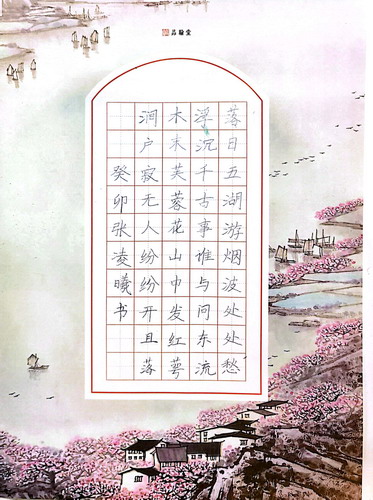 品翰堂
落日五湖游烟波处处愁
浮沉千古事谁与问东流
木末芙蓉花山中发红萼
涧户寂无人纷纷开且落
癸卯张凌曦书